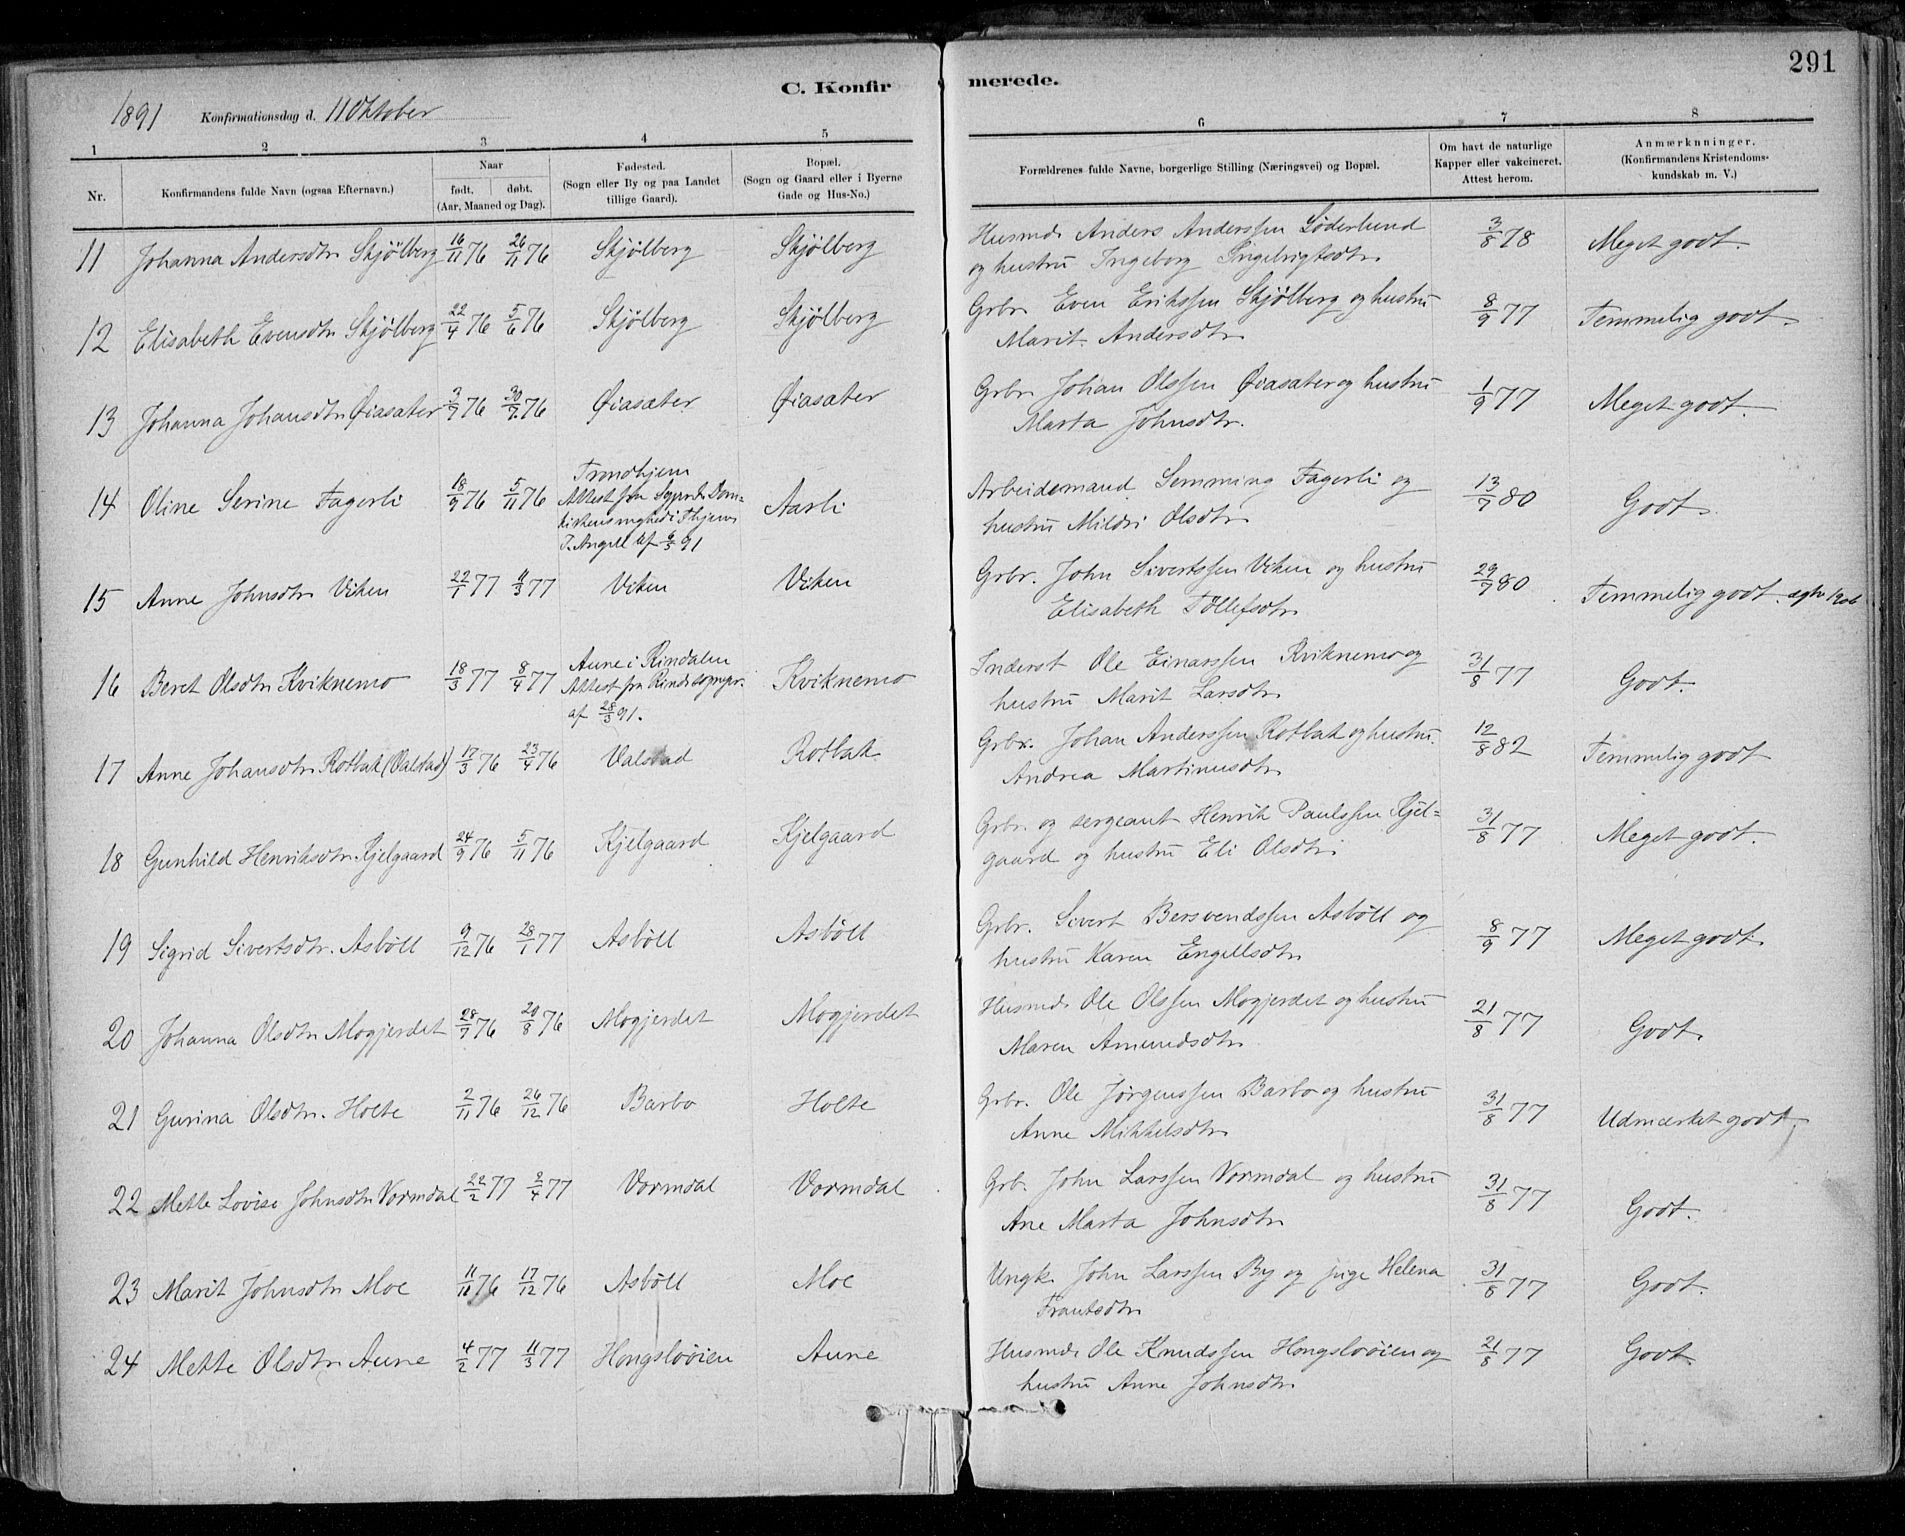 291
C. Konfirmerede.
1891 Konfirmationsdag d. 11 Oktober
1 2 3 4 5 6 7 8
Nr.
Konfirmandens fulde Navn (ogsaa Efternavn.)
Naar
født. døbt.
(Aar, Maaned og Dag).
Fødested.
(Sogn eller By og paa Landet
tillige Gaard).
Bopæl.
(Sogn og Gaard eller i Byerne
Gade og Hus-No.)
Forældrenes fulde Navne, borgerlige Stilling (Næringsvei) og Bopæl.
Om havt de naturlige
Kapper eller vakcineret.
Attest herom.
Anmærkninger.
(Konfirmandens Kristendoms-
kundskab m. V.)
11 Johanna Andersdtr Skjölberg 16/11 76 26/11 76 Skjölberg Skjölberg Husmd. Anders Anderssen Söderlund 3/8 78 Meget godt.
og hustru Ingeborg Ingebrigtsdtr.
12 Elisabeth Evensdtr Skjölberg 22/4 76 5/6 76 Skjölberg Skjölberg Grbr. Even Erikssen Skjölberg og hustru 8/9 77 Temmelig godt.
Marit Andersdtr.
13 Johanna Johansdtr Øiasæter 3/7 76 30/7 76 Øiasæter Øiasæter Grbr. Johan Olssen Øiasæter og hustru 1/9 77 Meget godt.
Marta Johnsdtr.
14 Oline Serine Fagerli 18/9 76 5/11 76 Trondhjem Aarli Arbeidsmand Semming Fagerli og 13/7 80 Godt.
Attest fra Sgpr. Dom-
kirkens mghed i Thjem
T. Angell af 6/3 91
hustru Mildri Olsdtr.
15 Anne Johnsdtr Viken 22/1 77 11/3 77 Viken Viken Grbr. John Sivertssen Viken og hustru 29/7 80 Temmelig godt.
Elisabeth Töllefsdtr.
16 Beret Olsdtr Kviknemo 18/3 77 8/4 77 Aune i Rindalen Kviknemo Inderst Ole Einarssen Kviknemo og 31/8 77 Godt.
Attest fra Rinds sognepr.
af 28/3 91.
hustru Marit Larsdtr.
17 Anne Johansdtr Rotbak (Valstad) 17/3 76 23/4 76 Valstad Rotbak Grbr. Johan Anderssen Rotbak og hustru 12/8 82 Temmelig godt
Andrea Martinusdtr.
18 Gunhild Henriksdtr Kjelgaard 24/9 76 5/11 76 Kjelgaard Kjelgaard Grbr. og sergeant Henrik Paulssen Kjel- 31/8 77 Meget godt.
gaard og hustru Eli Olsdtr.
19 Sigrid Sivertsdtr. Asböll 9/12 76 28/1 77 Asböll Asböll Grbr. Sivert Bersvendssen Asböll og 8/9 77 Meget godt.
hustru Karen Engellsdtr.
20 Johanna Olsdtr Mogjerdet 28/7 76 20/8 76 Mogjerdet Mogjerdet Husmd. Ole Olssen Mogjerdet og hustru 21/8 77 Godt.
Maren Amundsdtr.
21 Gurina Olsdtr. Holte 2/11 76 26/12 76 Barbo Holte Grbr. Ole Jörgenssen Barbo og hustru 31/8 77 Udmærket godt.
Anne Mikkelsdtr.
22 Mette Lovise Johnsdtr Vormdal 22/2 77 2/4 77 Vormdal Vormdal Grb. John Larssen Vormdal og hustru 31/8 77 Godt.
Ane Marta Johnsdtr.
23 Marit Johnsdtr Moe 11/10 76 17/12 76 Asböll Moe Ungk. John Larssen By og pige Helena 31/8 77 Godt.
Frantsdtr.
24 Mette Olsdtr Aune 4/2 77 11/3 77 Hongslöoien Aune Husmd. Ole Knudssen Hongslöoien og 21/8 77 Godt.
hustru Anne Johnsdtr.